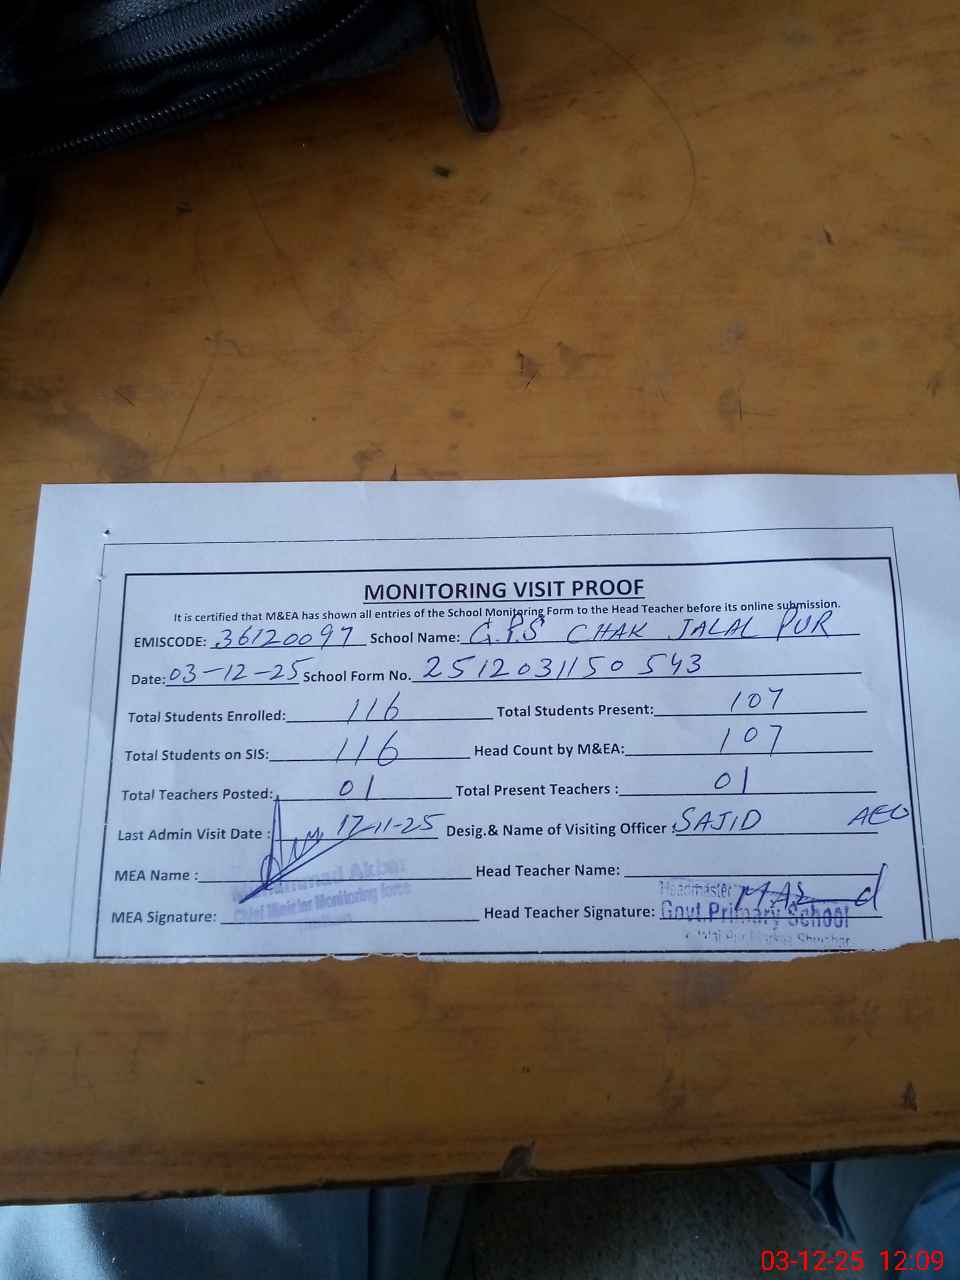 MONITORING VISIT PROOF
It is certified that M&EA has shown all entries of the School Monitoring Form to the Head Teacher before its online submission.
EMISCODE: 36120097 School Name: G.P.S CHAK JALAL PUR
Date: 03-12-25 School Form No. 2512031150543
Total Students Enrolled: 116 Total Students Present: 107
Total Students on SIS: 116 Head Count by M&EA: 107
Total Teachers Posted: 01 Total Present Teachers : 01
Last Admin Visit Date : 17-11-25 Desig.& Name of Visiting Officer : SAJID AEO
MEA Name : Head Teacher Name:
Akbar
Chief Minister Monitoring Force
Headmaster
MEA Signature: Head Teacher Signature: Govt. Primary School
03-12-25 12:09